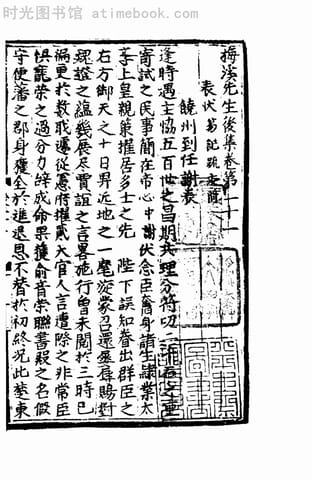 时光图书馆 atimebook.com
梅溪先生後集卷第二十一
表 狀 劄 記 疏
饒州到任謝表
逢時遇主協五百世之昌期共理分符切二千石之重
寄試之民事簡在帝心中謝伏念臣奮身諸生肄業太
學上皇親策擢居多士之先 陛下誤知眷出群臣之
右方御天之十日昇近地之一麾旋蒙召還屢賜對
魏證之蘊幾展尽賈誼之言畧施行曾未閱於三時已
徧更於數職遷從憲府擢貳大官人言遭際之非常臣
懼寵榮之過分力辭成命果獲俞音榮聯書殿之名假
守便藩之郡身獲全於進退恩不替於初終况此楚東